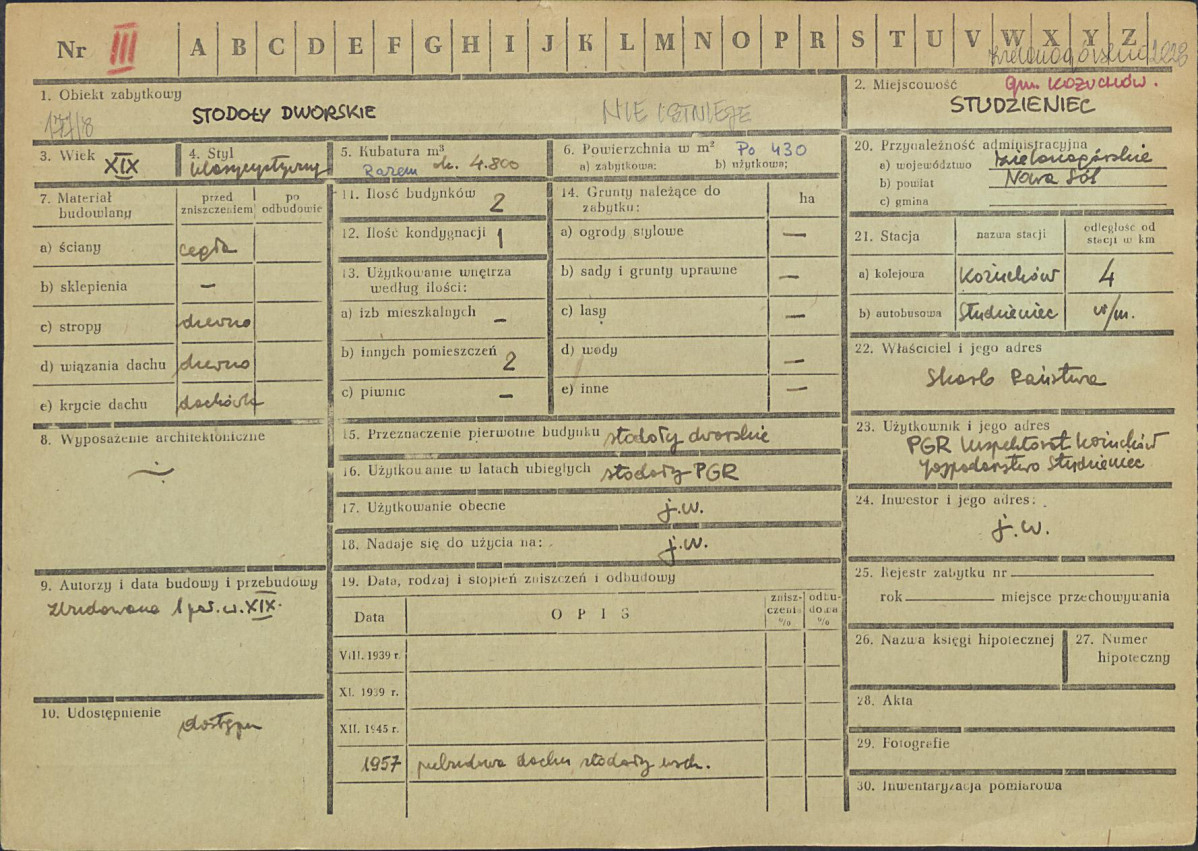 Nr III A B C D E F G H I J K L M N O P R S T U V W X Y Z
1. Obiekt zabytkowy
177/8 STODOŁY DWORSKIE NIE ISTNIEJE
2. Miejscowość Gm. KOŻUCHÓW.
STUDZIENIEC
3. Wiek XIX
4. Styl klasycystyczny
5. Kubatura m³
Razem ok. 4.800
6. Powierzchnia w m² Po 430
a) zabytkowa: b) użytkowa:
7. Materiał budowlany
przed zniszczeniem
po odbudowie
a) ściany cegła
b) sklepienia —
c) stropy drewno
d) wiązania dachu drewno
e) krycie dachu dachówka
8. Wyposażenie architektoniczne
9. Autorzy i data budowy i przebudowy
Zbudowana 1 poł. w. XIX.
10. Udostępnienie
dostępn
11. Ilość budynków 2
12. Ilość kondygnacji 1
13. Użytkowanie wnętrza
według ilości:
a) izb mieszkalnych —
b) innych pomieszczeń 2
c) piwnic —
14. Grunty należące do
zabytku: ha
a) ogrody stylowe —
b) sady i grunty uprawne —
c) lasy —
d) wody —
e) inne —
15. Przeznaczenie pierwotne budynku stodoły dworskie
16. Użytkowanie w latach ubiegłych stodoły PGR
17. Użytkowanie obecne j.w.
18. Nadaje się do użycia na: j.w.
19. Data, rodzaj i stopień zniszczeń i odbudowy
Data OPIS zniszczenia % odbudowa %
VIII. 1939 r.
XI. 1939 r.
XII. 1945 r.
1957 przebudowa dachu stodoły wsch.
20. Przynależność administracyjna
a) województwo zielonogórskie
b) powiat Nowa Sól
c) gmina
21. Stacja nazwa stacji odległość od stacji w km
a) kolejowa Kożuchów 4
b) autobusowa Studzieniec w/m.
22. Właściciel i jego adres
Skarb Państwa
23. Użytkownik i jego adres
PGR Inspektorat Kożuchów
gospodarstwo Studzieniec
24. Inwestor i jego adres:
j.w.
25. Rejestr zabytku nr
rok miejsce przechowywania
26. Nazwa księgi hipotecznej
27. Numer hipoteczny
28. Akta
29. Fotografie
30. Inwentaryzacja pomiarowa